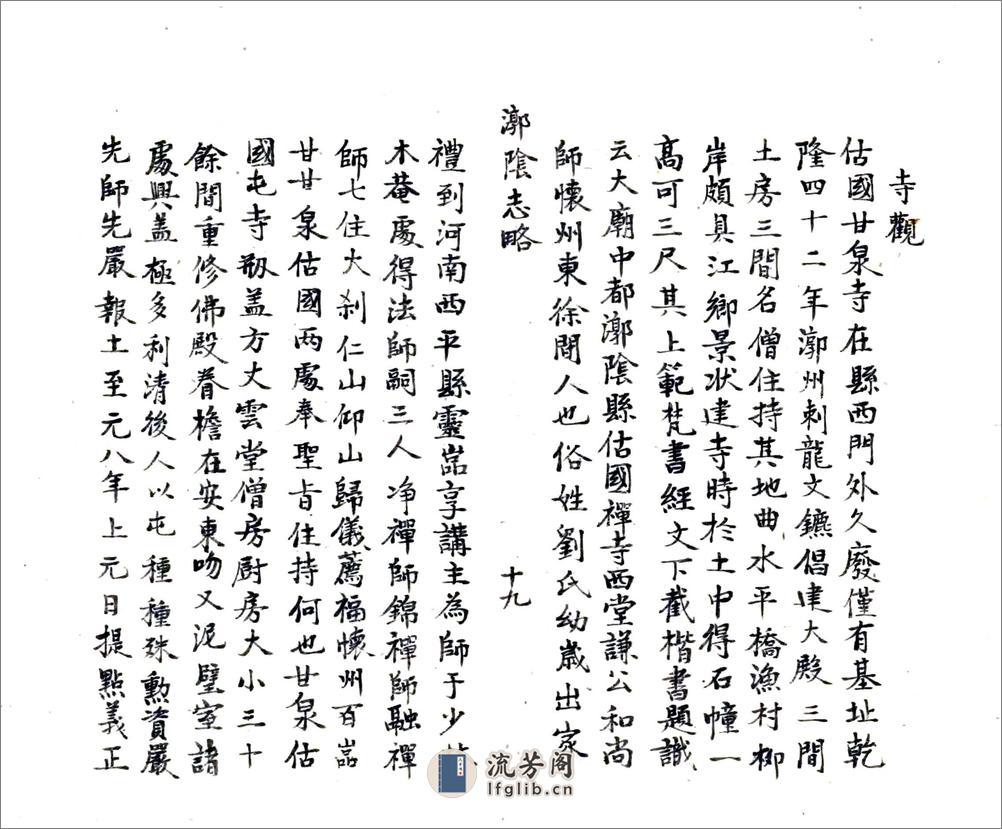 寺觀
佑國甘泉寺在縣西門外久廢僅有基址乾
隆四十二年漷州刺龍文鑣倡建大殿三間
土房三間名僧住持其地曲水平橋漁村柳
岸頗具江鄉景状建寺時於土中得石幢一
高可三尺其上範梵書經文下截楷書題識
云大廟中都漷陰縣估國禪寺西堂謙公和尚
師懷州東徐間人也俗姓劉氏幼歲出家
漷陰志略
十九
禮到河南西平縣靈嵓享講主為師于少
木菴處得法師嗣三人净禪師錦禪師融禪
師七住大刹仁山仰山歸儀薦福懷州百嵓
甘甘泉估國两處奉聖㫖住持何也甘泉估
國屯寺剏盖方丈雲堂僧房厨房大小三十
餘間重修佛殿眷檐在安東吻又泥壁室諸
處興盖極多利清後人以屯種種殊勳資嚴
先師先嚴報土至元八年上元日提點義正
流芳阁
lfglib.cn